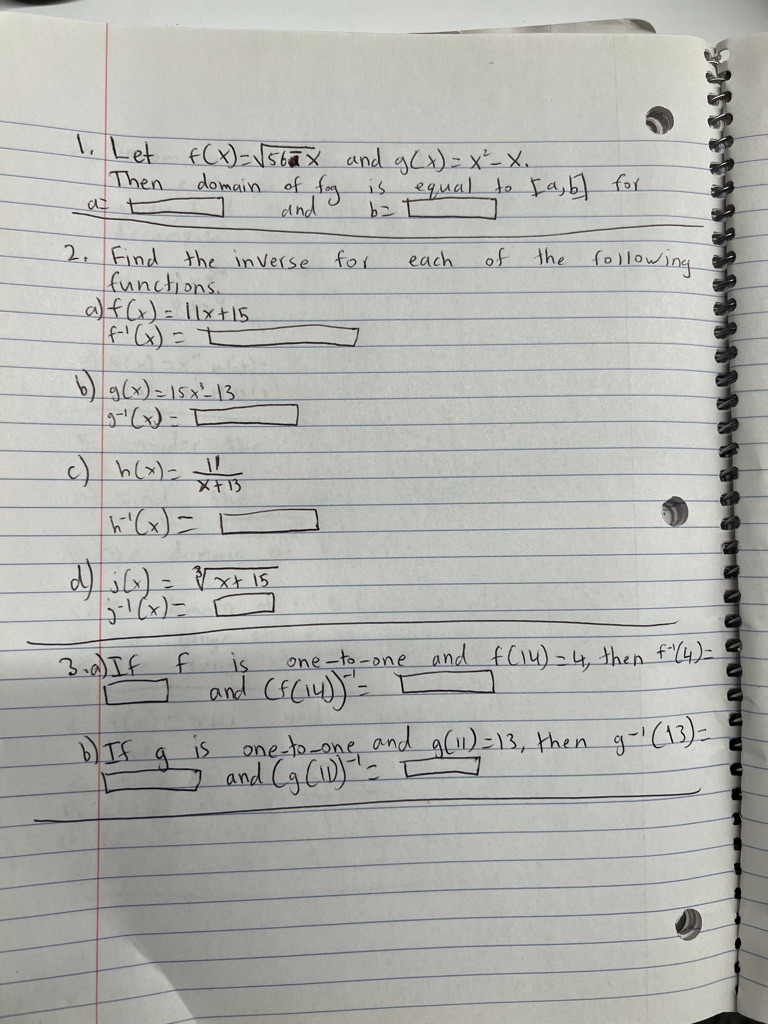 1. Let f(x)=√56-x and g(x)=x²-x.
Then domain of fog is equal to [a,b] for
a= and b=
2. Find the inverse for each of the following
functions.
a) f(x) = 11x+15
f⁻¹(x) =
b) g(x)=15x³-13
g⁻¹(x) =
c) h(x)= 11/(x+13)
h⁻¹(x) =
d) j(x) = ∛x+15
j⁻¹(x)=
3.a) If f is one-to-one and f(14)=4, then f⁻¹(4)=
and (f(14))⁻¹=
b) If g is one-to-one and g(11)=13, then g⁻¹(13)=
and (g(11))⁻¹=